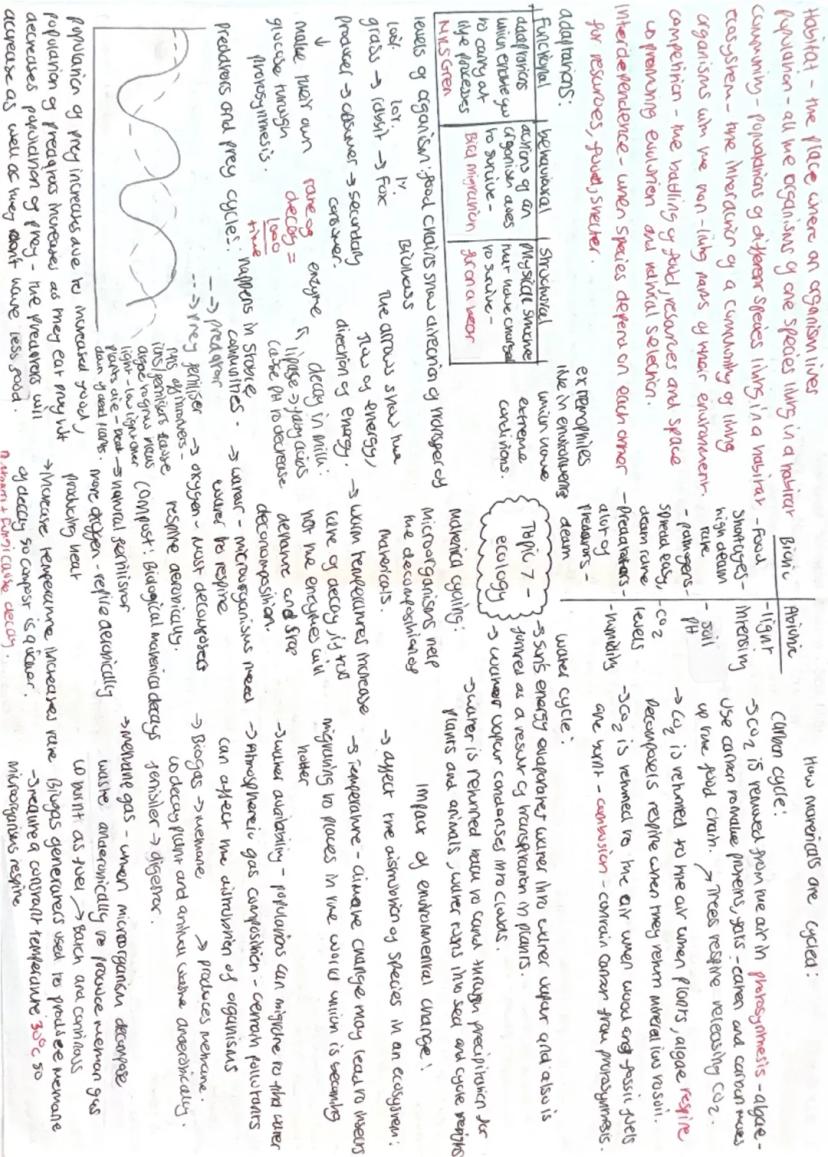 Habitat - the place where an organism lives
population - all the organisms of one species living in a habitat
Community - populations of different species living in a habitat
ecosystem - the interaction of a community of living
organisms with the non-living parts of their environment.
competition - the battling of food, resources and space
Interdependence - when species depend on each other
for resources, food, shelter.
adaptations:
Functional
adaptations
which enable you
to carry out
life processes
behavioural
actions of an
organism does
to survive -
Bird migration
Structural
Physical structure
to survive -
extremophiles
live in environments
which have
extreme
conditions.
levels of organism: food chains show direction of transfer of
Biomass
The arrows show the
flow of energy,
direction of energy.
grass → rabbit → Fox
producer → consumer → secondary
consumer.
↓
make their own
glucose through
photosynthesis.
rate of
decay =
1000
time
decay in milk:
enzyme
lipase → fatty acids
cause pH to decrease
predators and prey cycles:
happens in stable
communities.
---> predator
population of prey increases due to increased food,
population of predators increases as they eat prey but
decreases population of prey - the predators will
decrease as well as they don't have less food.
Biotic
Abiotic
- Food
Shortages -
high death
rate
pathogens
spread easy,
death rate
- Predators -
alot of
predators -
death
- light
intensity
- soil
pH
- CO2
levels
- humidity
Topic 7 -
ecology
material cycling:
Microorganisms help
the decomposition of
materials.
→ warm temperatures increase
rate of decay, if too
hot the enzymes will
denature and stop
decomposition.
→ water - microorganisms need
water to respire
→ oxygen - most decomposers
respire aerobically.
compost: Biological material decays
→ natural fertiliser
more oxygen -
aerobically
producing heat
→ Increase temperature increases rate
of decay so compost is quicker.
How materials are cycled:
Carbon cycle:
→ CO2 is removed from the air in photosynthesis - algae -
use carbon to make proteins, fats - eaten and carbon moves
up the food chain.
→ Trees respire releasing CO2.
→ CO2 is returned to the air when plants, algae respire
Decomposers respire when they return mineral ions to soil.
→ CO2 is returned to the air when wood and fossil fuels
are burnt - combustion - contain carbon from photosynthesis.
water cycle:
→ Sun's energy evaporates water into water vapour and also is
formed as a result of transpiration in plants.
→ water vapour condenses into clouds.
→ water is returned back to land through precipitation for
plants and animals, water runs into sea and cycle restarts
Impact of environmental change:
→ affect the distribution of species in an ecosystem:
→ Temperature - climate change may lead to insects
migrating to places in the world which is becoming
hotter
→ water availability - populations can migrate to find water
→ Atmospheric gas composition - certain pollutants
can affect the distribution of organisms
→ Biogas → methane
→ produces methane.
to decay plant and animal waste anaerobically.
→ methane gas - when microorganisms decompose
waste anaerobically to produce methane gas
to burn as fuel
→ Batch and continuous
Biogas generators used to produce methane
→ require a constant temperature 30°C so
microorganisms respire